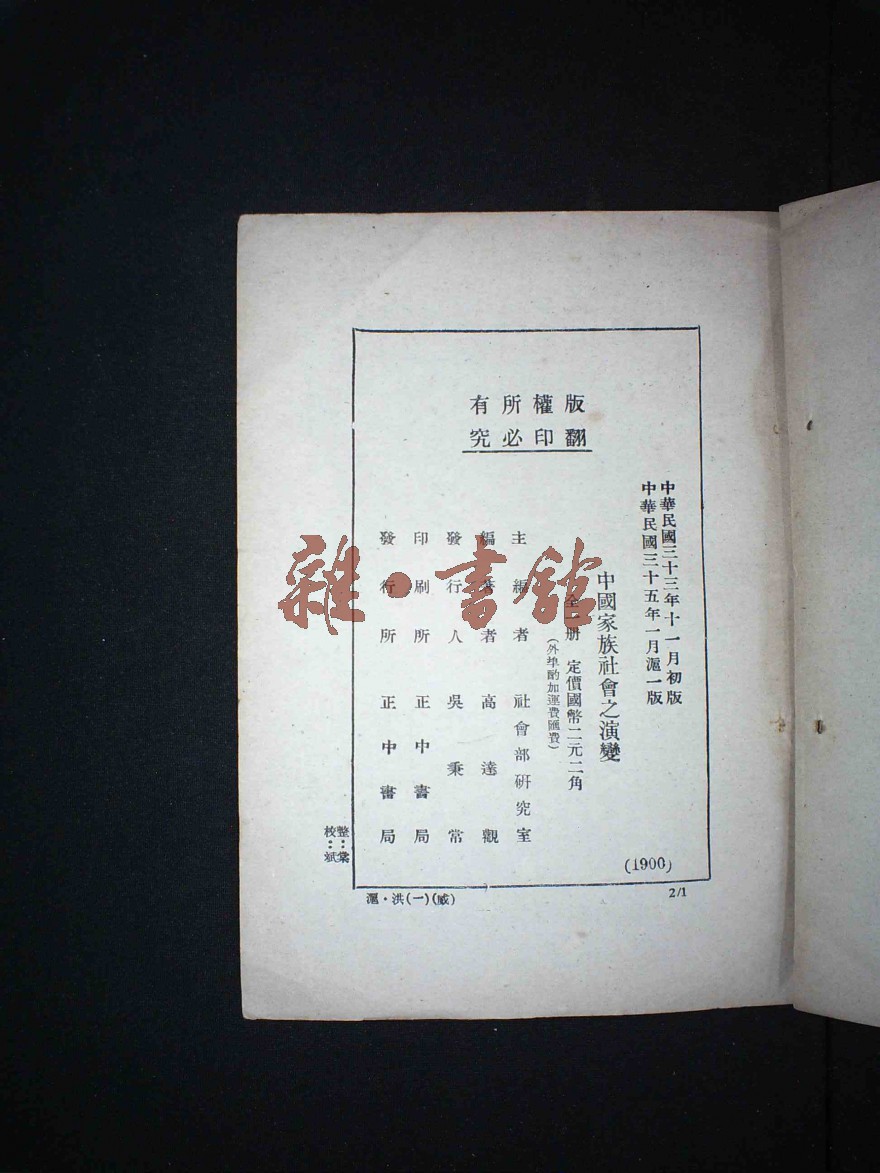 版權所有
翻印必究
中華民國三十三年十一月初版
中華民國三十五年一月滬一版
中國家族社會之演變
全一册 定價國幣二元二角
(外埠酌加運費匯費)
主編者 社會部研究室
編著者 高達觀
發行人 吳秉常
印刷所 正中書局
發行所 正中書局
(1900)
整:棠
校:斌
滬·洪(一)(威)
2/1
雜·書館